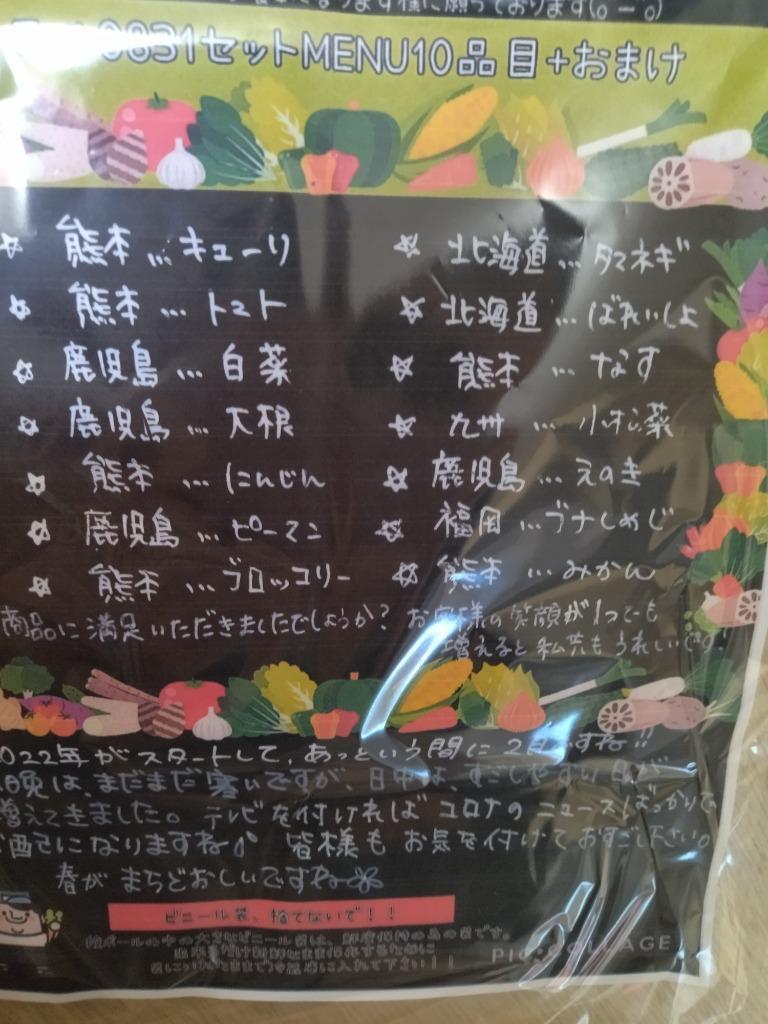 なります様に願っております(o^-^o)
0831セットMENU10品目+おまけ
☆ 熊本…キューリ
☆ 熊本…トマト
☆ 鹿児島…白菜
☆ 鹿児島…大根
☆ 熊本…にんじん
☆ 鹿児島…ピーマン
☆ 熊本…ブロッコリー
☆ 北海道…タマネギ
☆ 北海道…ばれいしょ
☆ 熊本…なす
☆ 九州…小松菜
☆ 鹿児島…えのき
☆ 福岡…ブナしめじ
☆ 熊本…みかん
商品に満足いただきましたでしょうか? お客様の笑顔が1つでも
増えると私共もうれしいです!
2022年がスタートして、あっという間に2月ですね!!
晩は、まだまだ寒いですが、日中は、すごしやすい日が
増えてきました。テレビを付ければコロナのニュースばっかりで
心配になりますね♪ 皆様もお気を付けておすごし下さい。
春がまちどおしいですね
ビニール袋、捨てないで!!
段ボールの中の大きなビニール袋は、鮮度保持の為の袋です。
出来るだけ新鮮なまま保存するために
袋にいれたままで冷蔵庫に入れて下さい!!
PIC•COLLAGE